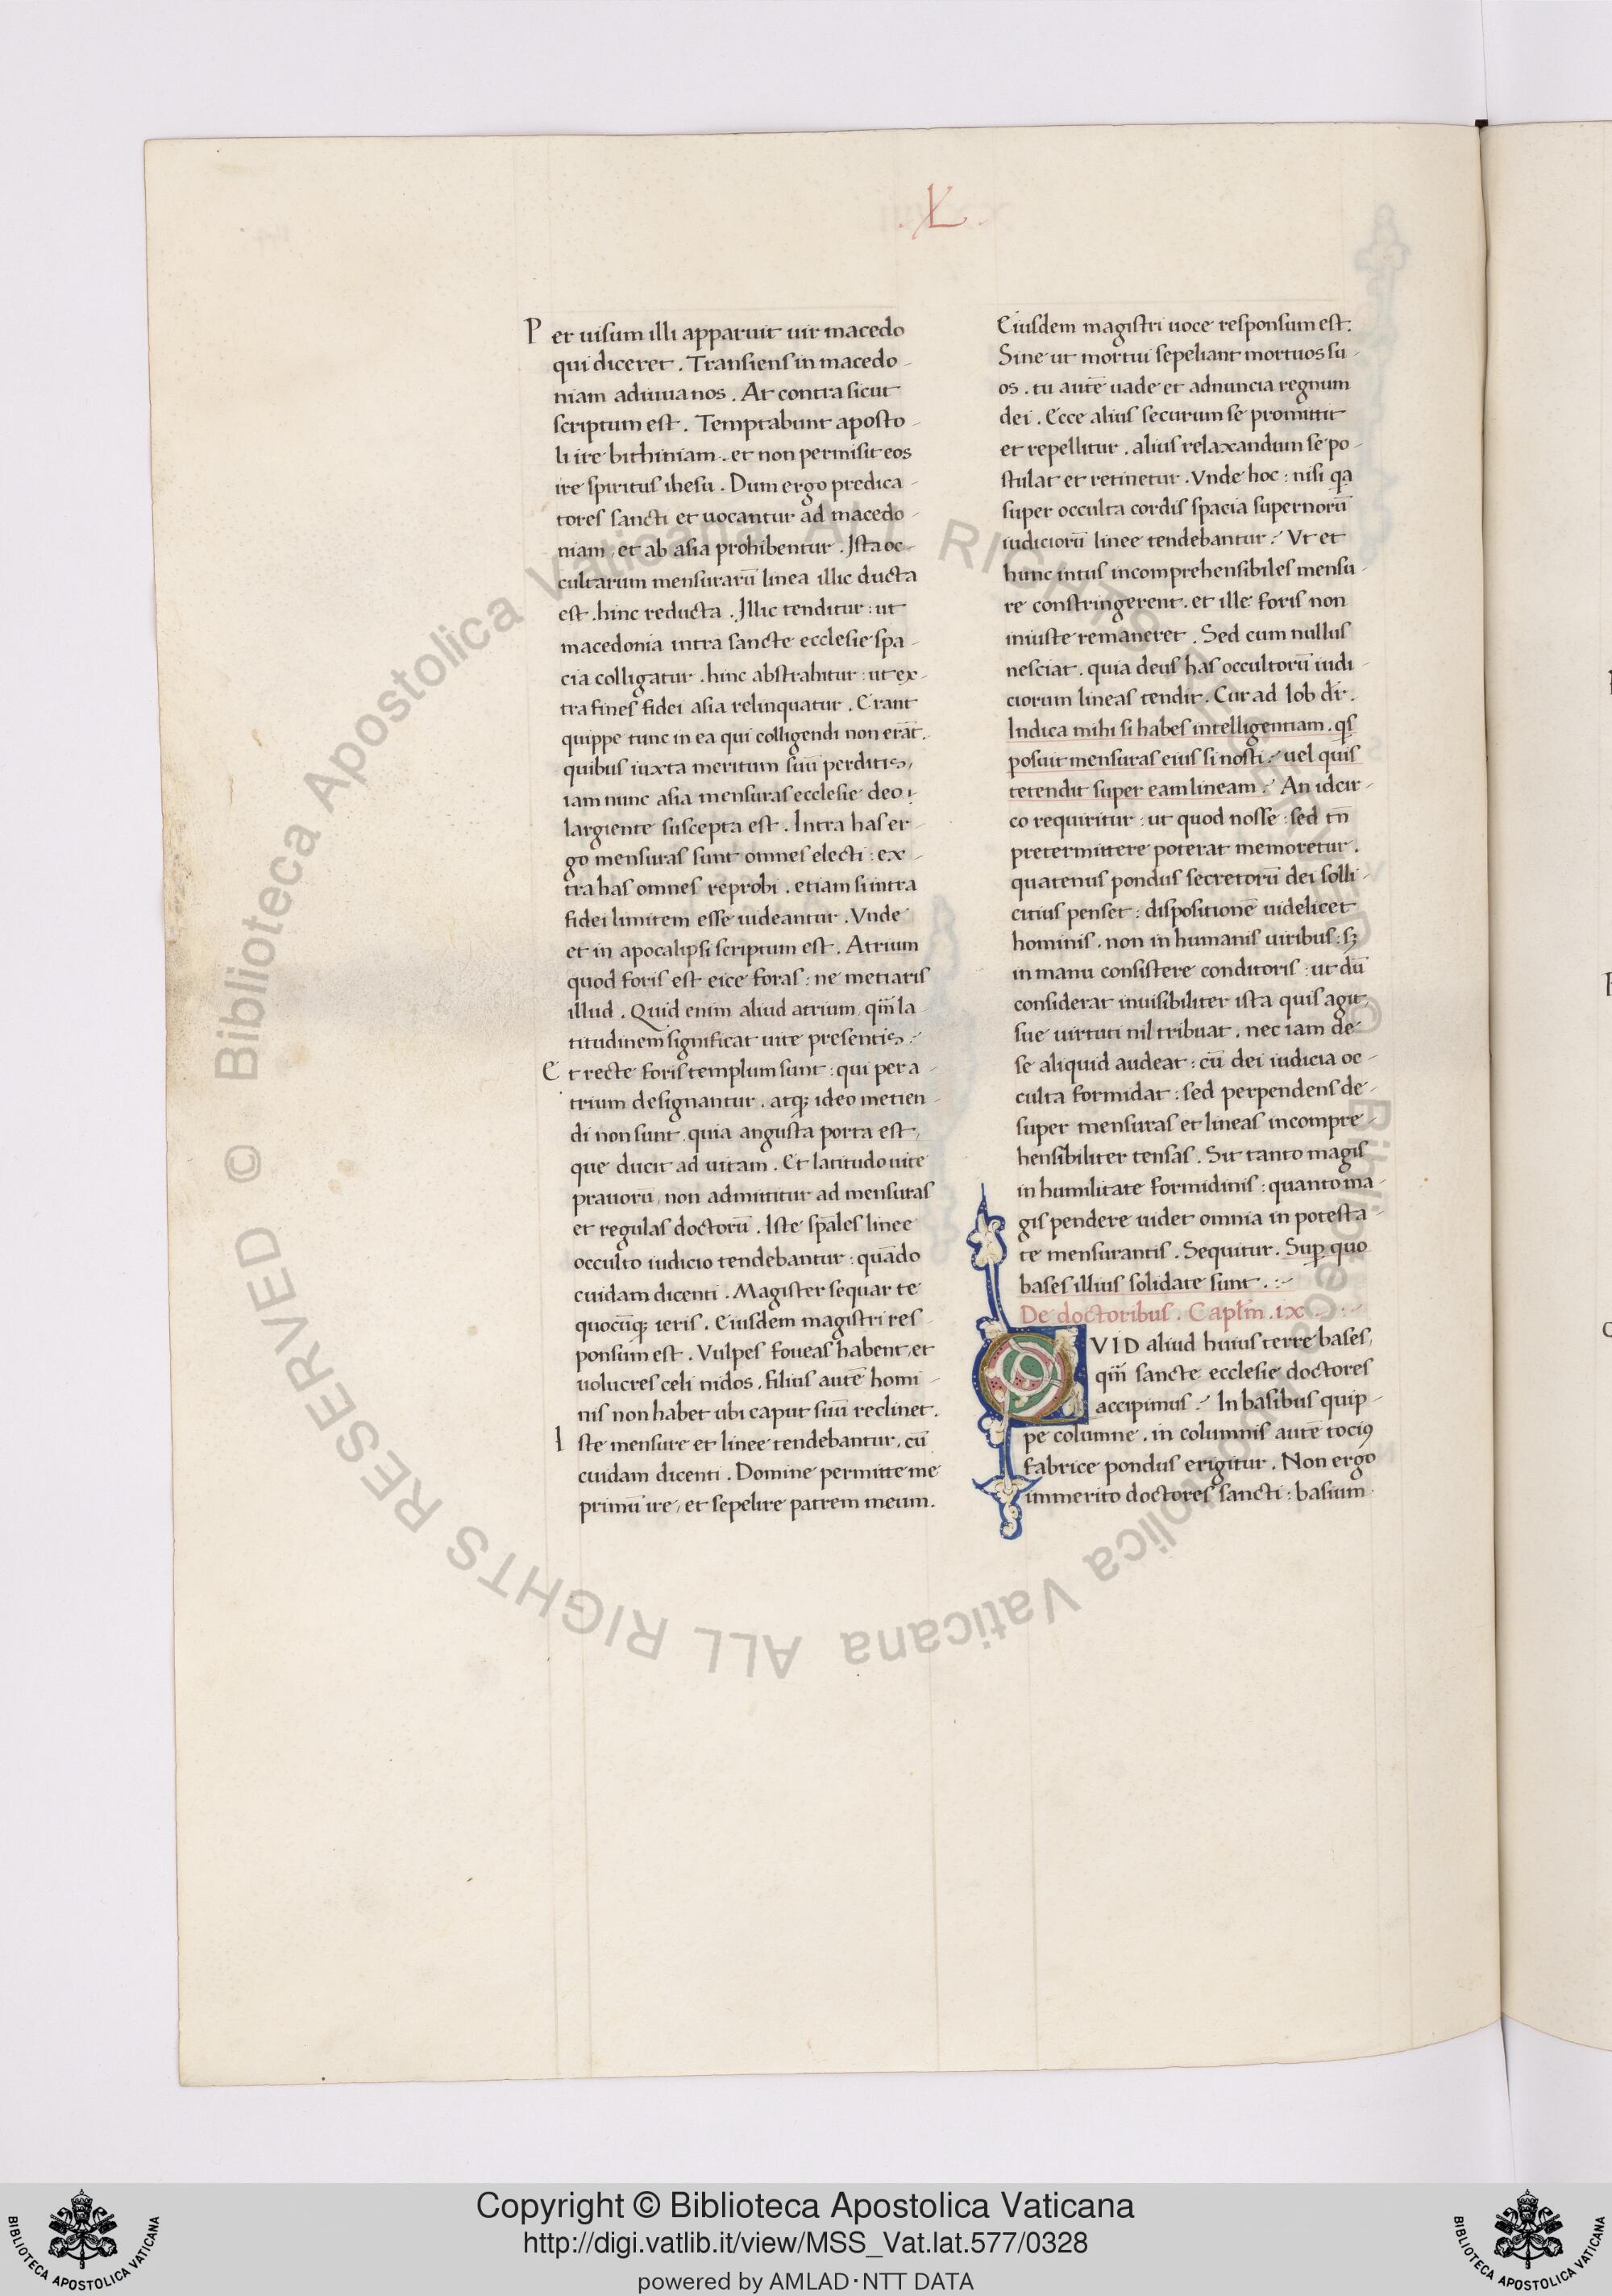 .XL.
Per uisum illi apparuit uir macedo
qui diceret. Transiens in macedo-
niam adiuua nos. At contra sicut
scriptum est. Temptabunt aposto-
li ire bithiniam. et non permisit eos
ire spiritus ihesu. Dum ergo predica-
tores sancti et uocantur ad macedo-
niam, et ab asia prohibentur. Ista oc-
cultarum mensurarū linea illic ducta
est. hinc reducta. Illic tenditur: ut
macedonia intra sancte ecclesie spa-
cia colligatur. hinc abstrahitur: ut ex-
tra fines fidei asia relinquatur. Erant
quippe tunc in ea qui colligendi non erāt.
quibus iuxta meritum suū perditis,
iam nunc asia mensuras ecclesie deo
largiente suscepta est. Intra has er-
go mensuras sunt omnes electi: ex-
tra has omnes reprobi. etiam si intra
fidei limitem esse uideantur. Vnde
et in apocalipsi scriptum est. Atrium
quod foris est eice foras: ne metiaris
illud. Quid enim aliud atrium, qm̄ la
titudinem significat uite presentis.
Et recte foris templum sunt: qui per a-
trium designantur. atq; ideo metien-
di non sunt. quia angusta porta est,
que ducit ad uitam. Et latitudo uite
prauorū, non admittitur ad mensuras
et regulas doctorū. Iste sp̄ales linee
occulto iudicio tendebantur: quādo
cuidam dicenti. Magister sequar te
quocūq; ieris. Eiusdem magistri res-
ponsum est. Vulpes foueas habent, et
uolucres celi nidos. filius autē homi-
nis non habet ubi caput suū reclinet.
Iste mensure et linee tendebantur, cū
cuidam dicenti. Domine permitte me
primū ire, et sepelire patrem meum.
Eiusdem magistri uoce responsum est.
Sine ut mortui sepeliant mortuos su-
os. tu autē uade et adnuncia regnum
dei. Ecce alius securum se promittit
et repellitur. alius relaxandum se po-
stulat et retinetur. Vnde hoc: nisi qa
super occulta cordis spacia supernorū
iudiciorū linee tendebantur. Vt et
hunc intus incomprehensibiles mensu-
re constringerent. et ille foris non
iniuste remaneret. Sed cum nullus
nesciat. quia deus has occultorū iudi-
ciorum lineas tendit. Cur ad Iob dr̄.
Indica mihi si habes intelligentiam. qs
posuit mensuras eius si nosti. uel quis
tetendit super eam lineam. An idcir-
co requiritur: ut quod nosse: sed tn̄
pretermittere poterat memoretur.
quatenus pondus secretorū dei solli-
citius penset: dispositionē uidelicet
hominis. non in humanis uiribus: sȝ
in manu consistere conditoris: ut dū
considerat inuisibiliter ista quis agit,
sue uirtuti nil tribuat. nec iam de
se aliquid audeat: cū dei iudicia oc-
culta formidat: sed perpendens de-
super mensuras et lineas incompre-
hensibiliter tensas. Sit tanto magis
in humilitate formidinis: quanto ma-
gis pendere uidet omnia in potesta-
te mensurantis. Sequitur. Sup̱ quo
bases illius solidate sunt.:-
De doctoribus. Capl̄m .ix.:-
QVID aliud huius terre bases,
qm̄ sancte ecclesie doctores
accipimus. In basibus quip-
pe columne. in columnis autē tociꝰ
fabrice pondus erigitur. Non ergo
immerito doctores sancti: basium
Copyright © Biblioteca Apostolica Vaticana
http://digi.vatlib.it/view/MSS_Vat.lat.577/0328
powered by AMLAD·NTT DATA
BIBLIOTECA APOSTOLICA VATICANA
BIBLIOTECA APOSTOLICA VATICANA
© Biblioteca Apostolica Vaticana ALL RIGHTS RESERVED © Biblioteca Apostolica Vaticana ALL RIGHTS RESERVED